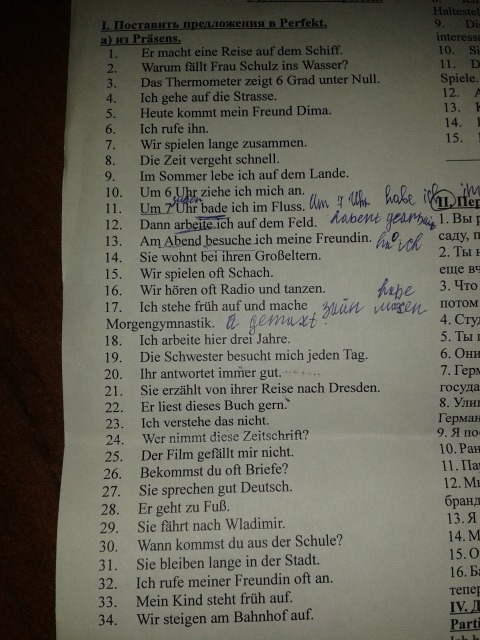 I. Поставить предложения в Perfekt.
а) из Präsens.
1. Er macht eine Reise auf dem Schiff.
2. Warum fällt Frau Schulz ins Wasser?
3. Das Thermometer zeigt 6 Grad unter Null.
4. Ich gehe auf die Strasse.
5. Heute kommt mein Freund Dima.
6. Ich rufe ihn.
7. Wir spielen lange zusammen.
8. Die Zeit vergeht schnell.
9. Im Sommer lebe ich auf dem Lande.
10. Um 6 Uhr ziehe ich mich an.
11. Um 7 Uhr bade ich im Fluss. Um 7 Uhr habe ich
12. Dann arbeite ich auf dem Feld.
13. Am Abend besuche ich meine Freundin. ich
14. Sie wohnt bei ihren Großeltern.
15. Wir spielen oft Schach.
16. Wir hören oft Radio und tanzen. habe
17. Ich stehe früh auf und mache
Morgengymnastik.
18. Ich arbeite hier drei Jahre.
19. Die Schwester besucht mich jeden Tag.
20. Ihr antwortet immer gut.
21. Sie erzählt von ihrer Reise nach Dresden.
22. Er liest dieses Buch gern.
23. Ich verstehe das nicht.
24. Wer nimmt diese Zeitschrift?
25. Der Film gefällt mir nicht.
26. Bekommst du oft Briefe?
27. Sie sprechen gut Deutsch.
28. Er geht zu Fuß.
29. Sie fährt nach Wladimir.
30. Wann kommst du aus der Schule?
31. Sie bleiben lange in der Stadt.
32. Ich rufe meiner Freundin oft an.
33. Mein Kind steht früh auf.
34. Wir steigen am Bahnhof auf.
9.
interess
10. Si
11. D
Spiele.
12.
13.
14.
15.
II. Пер
1. Вы р
саду, п
2. Ты н
еще вч
3. Что
потом
4. Сту
5. Ты
6. Они
7. Герм
госуда
8. Ули
Герман
9. Я по
10. Ран
11. Па
12. Мы
бранд
13. Я
14. М
15. О
16. Ба
тепер
IV. Д
Parti